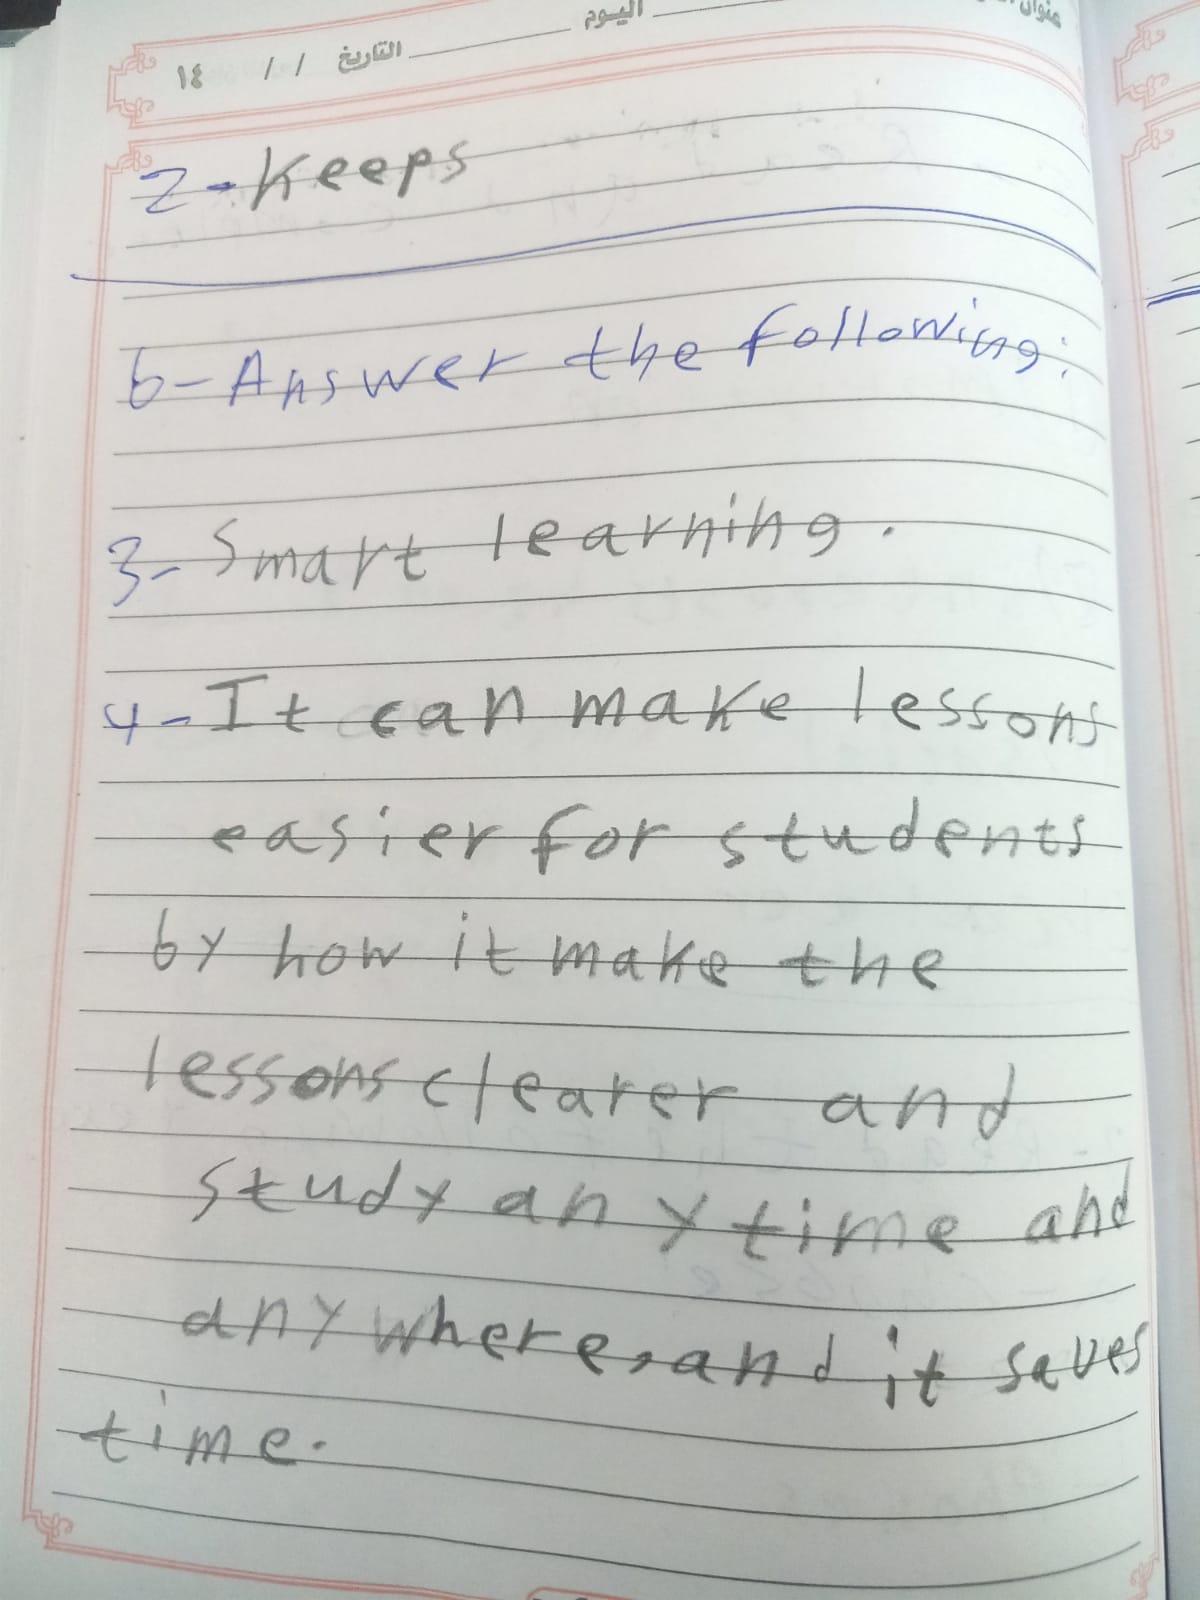 اليوم
التاريخ / / ١٤
2-Keeps
b-Answer the following:
3-Smart learning.
4-It can make lessons
easier for students
by how it make the
lessons clearer and
study any time and
anywhere, and it saves
time.